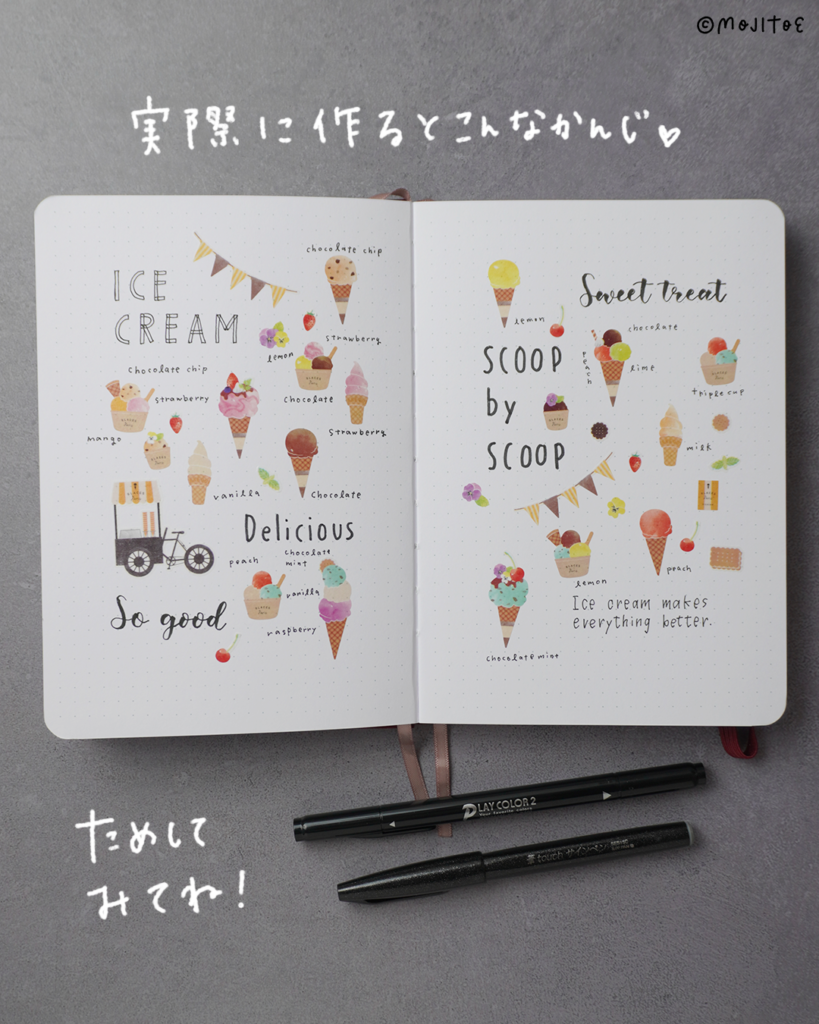 ©MOJITOE
実際に作るとこんなかんじ♡
ICE
CREAM
chocolate chip
strawberry
lemon
chocolate chip
strawberry
chocolate
mango
strawberry
vanilla
chocolate
Delicious
peach
chocolate
mint
vanilla
raspberry
So good
lemon
Sweet treat
chocolate
peach
lime
SCOOP
by
SCOOP
triple cup
milk
lemon
peach
Ice cream makes
everything better.
chocolate mint
PLAY COLOR 2
Your favorite colors
touch サインペン
ためして
みてね!